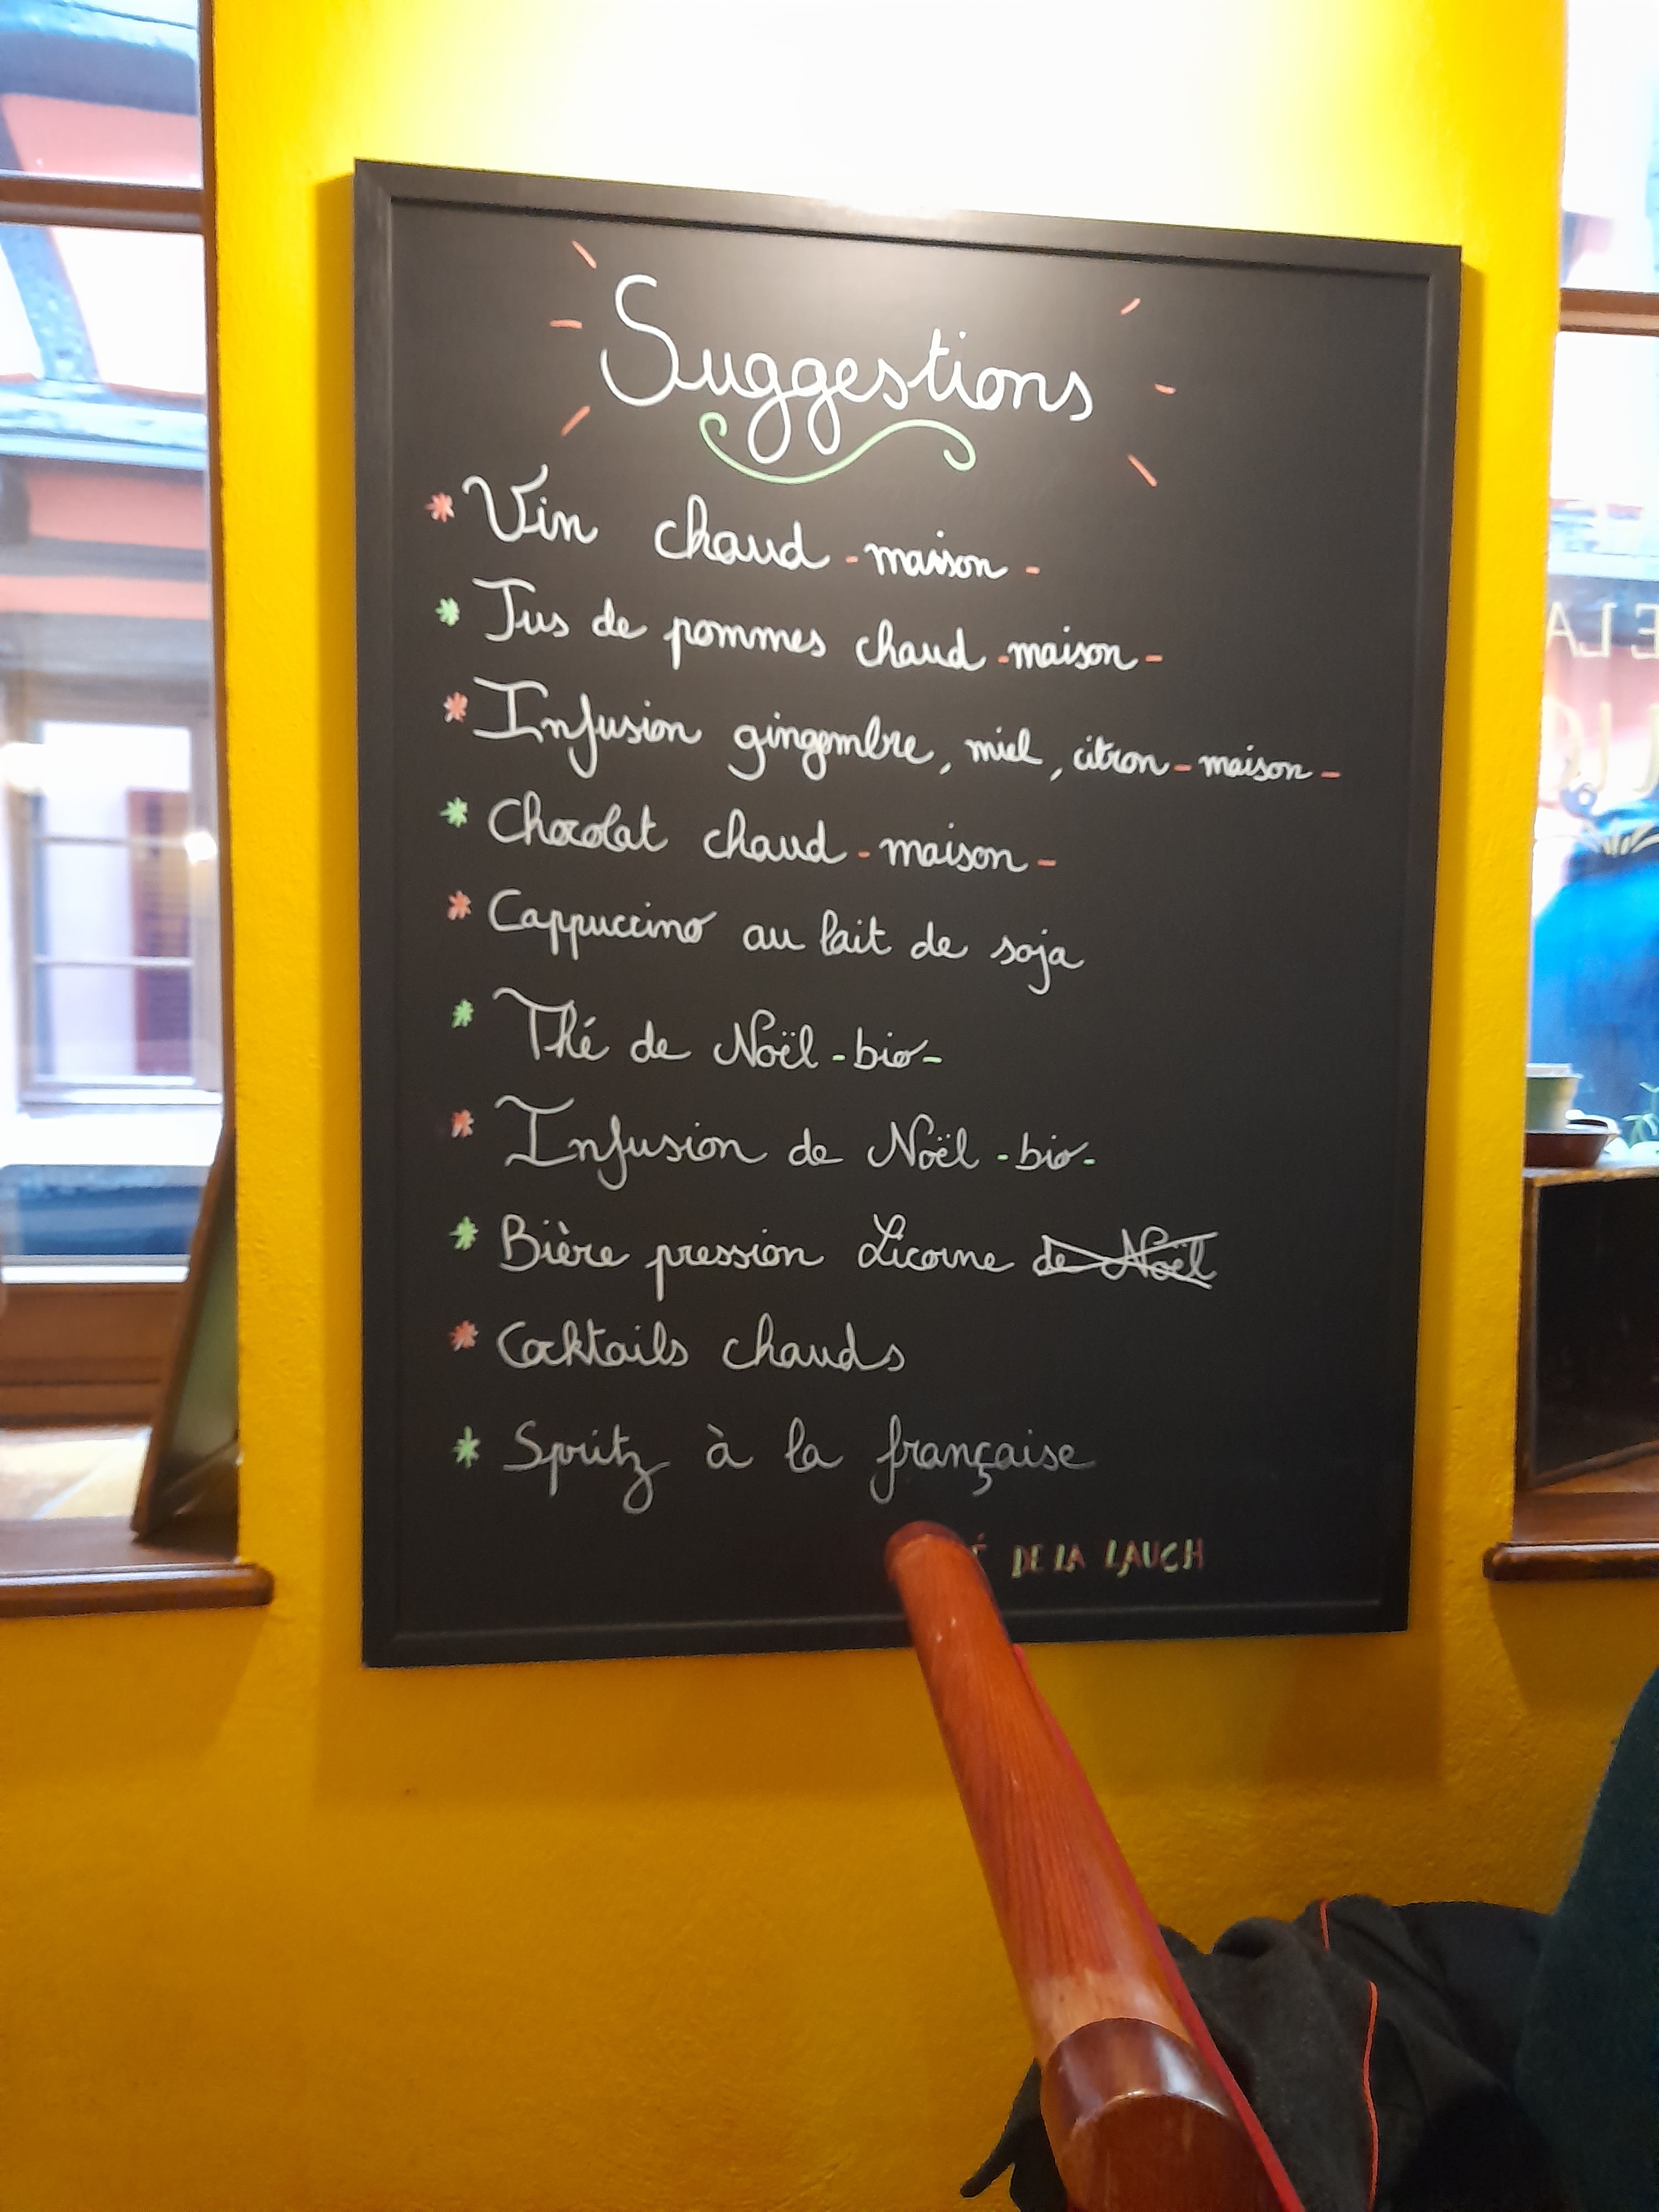 Suggestions
* Vin chaud - maison -
* Jus de pommes chaud - maison -
* Infusion gingembre, miel, citron - maison -
* Chocolat chaud - maison -
* Cappuccino au lait de soja
* Thé de Noël - bio -
* Infusion de Noël - bio -
* Bière pression Licorne de Noël
* Cocktails chauds
* Spritz à la française
DE LA LAUCH